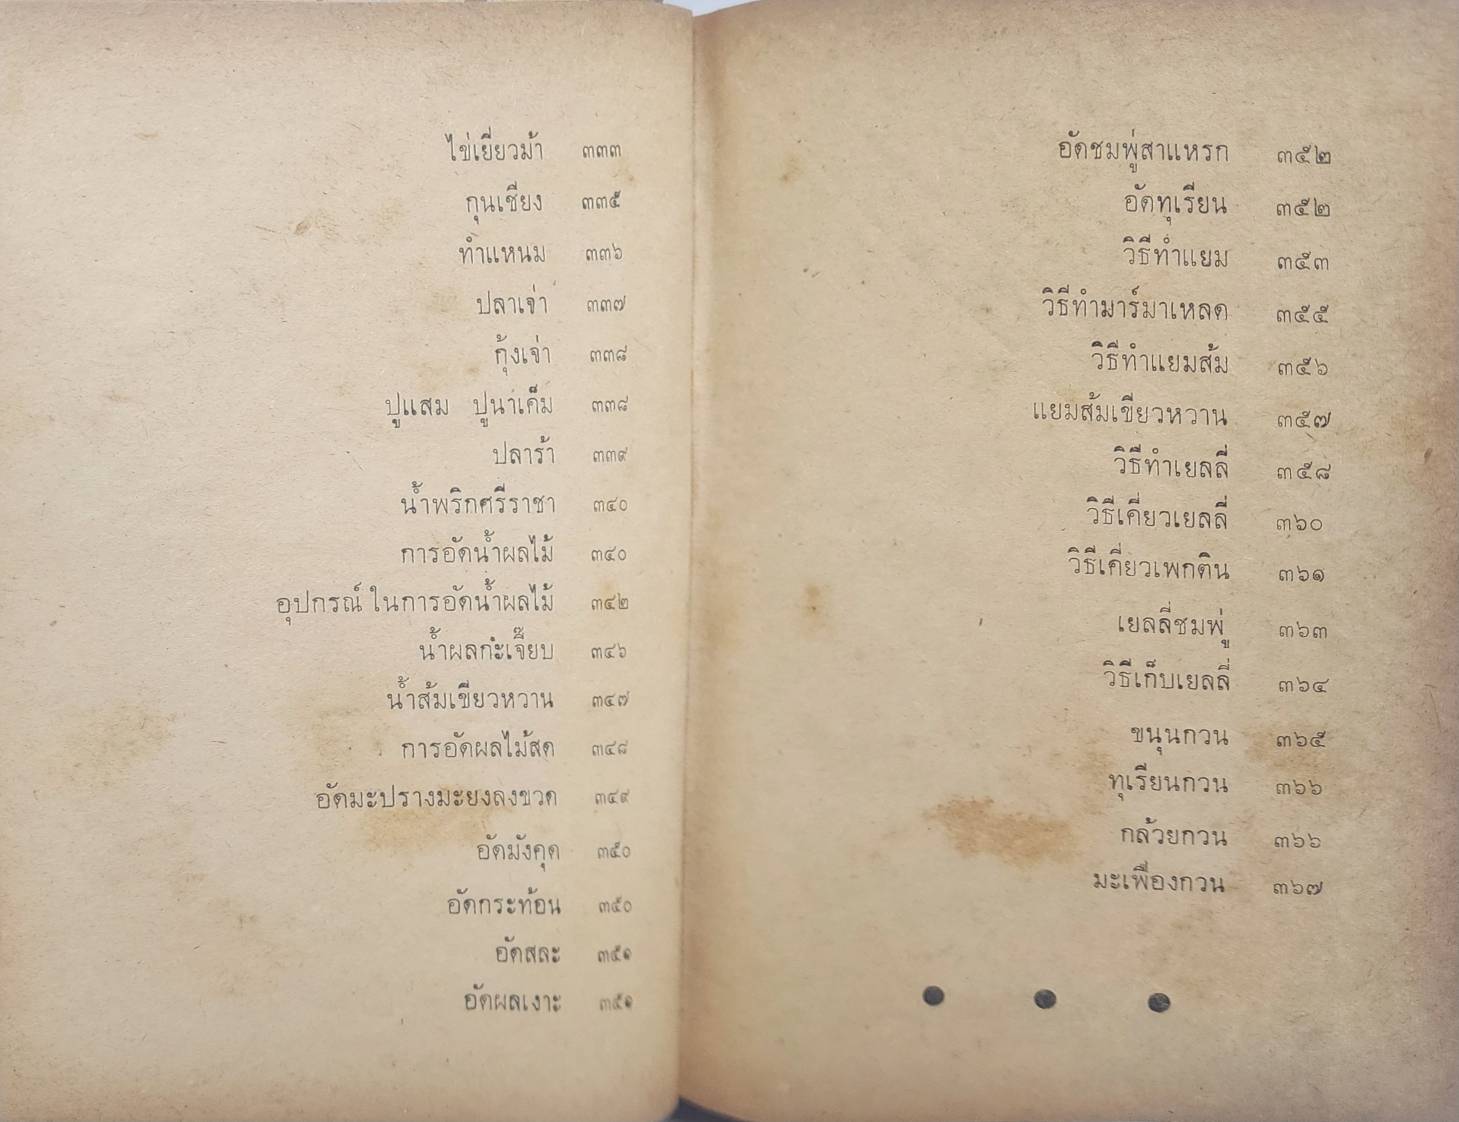 ไข่เยี่ยวม้า ๓๓๓
กุนเชียง ๓๓๕
ทำแหนม ๓๓๖
ปลาเจ่า ๓๓๗
กุ้งเจ่า ๓๓๘
ปูแสม ปูนาเค็ม ๓๓๘
ปลาร้า ๓๓๙
น้ำพริกศรีราชา ๓๔๐
การอัดน้ำผลไม้ ๓๔๐
อุปกรณ์ในการอัดน้ำผลไม้ ๓๔๒
น้ำผลกะเจี๊ยบ ๓๔๖
น้ำส้มเขียวหวาน ๓๔๗
การอัดผลไม้สด ๓๔๘
อัดมะปรางมะยงลงขวด ๓๔๙
อัดมังคุด ๓๕๐
อัดกระท้อน ๓๕๐
อัดสละ ๓๕๑
อัดผลเงาะ ๓๕๑
อัดชมพู่สาแหรก ๓๕๒
อัดทุเรียน ๓๕๒
วิธีทำแยม ๓๕๓
วิธีทำมาร์มาเหลด ๓๕๕
วิธีทำแยมส้ม ๓๕๖
แยมส้มเขียวหวาน ๓๕๗
วิธีทำเยลลี่ ๓๕๘
วิธีเคี่ยวเยลลี่ ๓๖๐
วิธีเคี่ยวเพกติน ๓๖๑
เยลลี่ชมพู่ ๓๖๓
วิธีเก็บเยลลี่ ๓๖๔
ขนุนกวน ๓๖๕
ทุเรียนกวน ๓๖๖
กล้วยกวน ๓๖๖
มะเฟืองกวน ๓๖๗